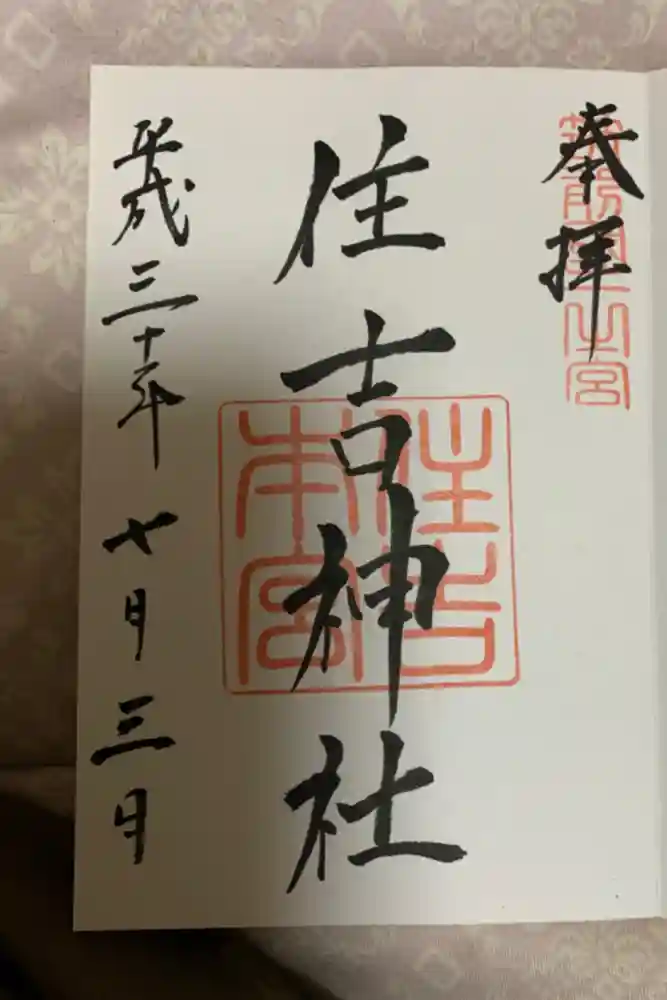 奉拝
筑前國一之宮
住吉神社
住吉本宮
平成三十年七月三日